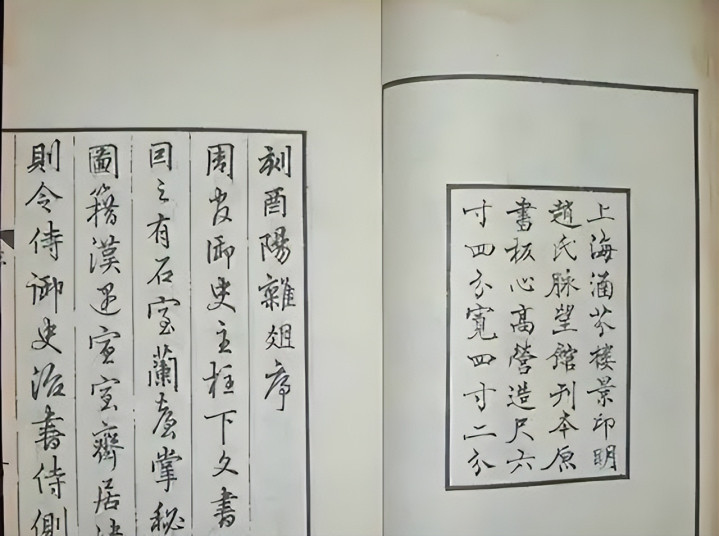 上海涵芬樓景印明
趙氏脉望館刊本原
書板心高營造尺六
寸四分寬四寸二分
刻酉陽雜俎序
周官御史主柱下文書
囙之有石室蘭臺掌秘
圖籍漢宣室齊居
則令侍御史治書侍側